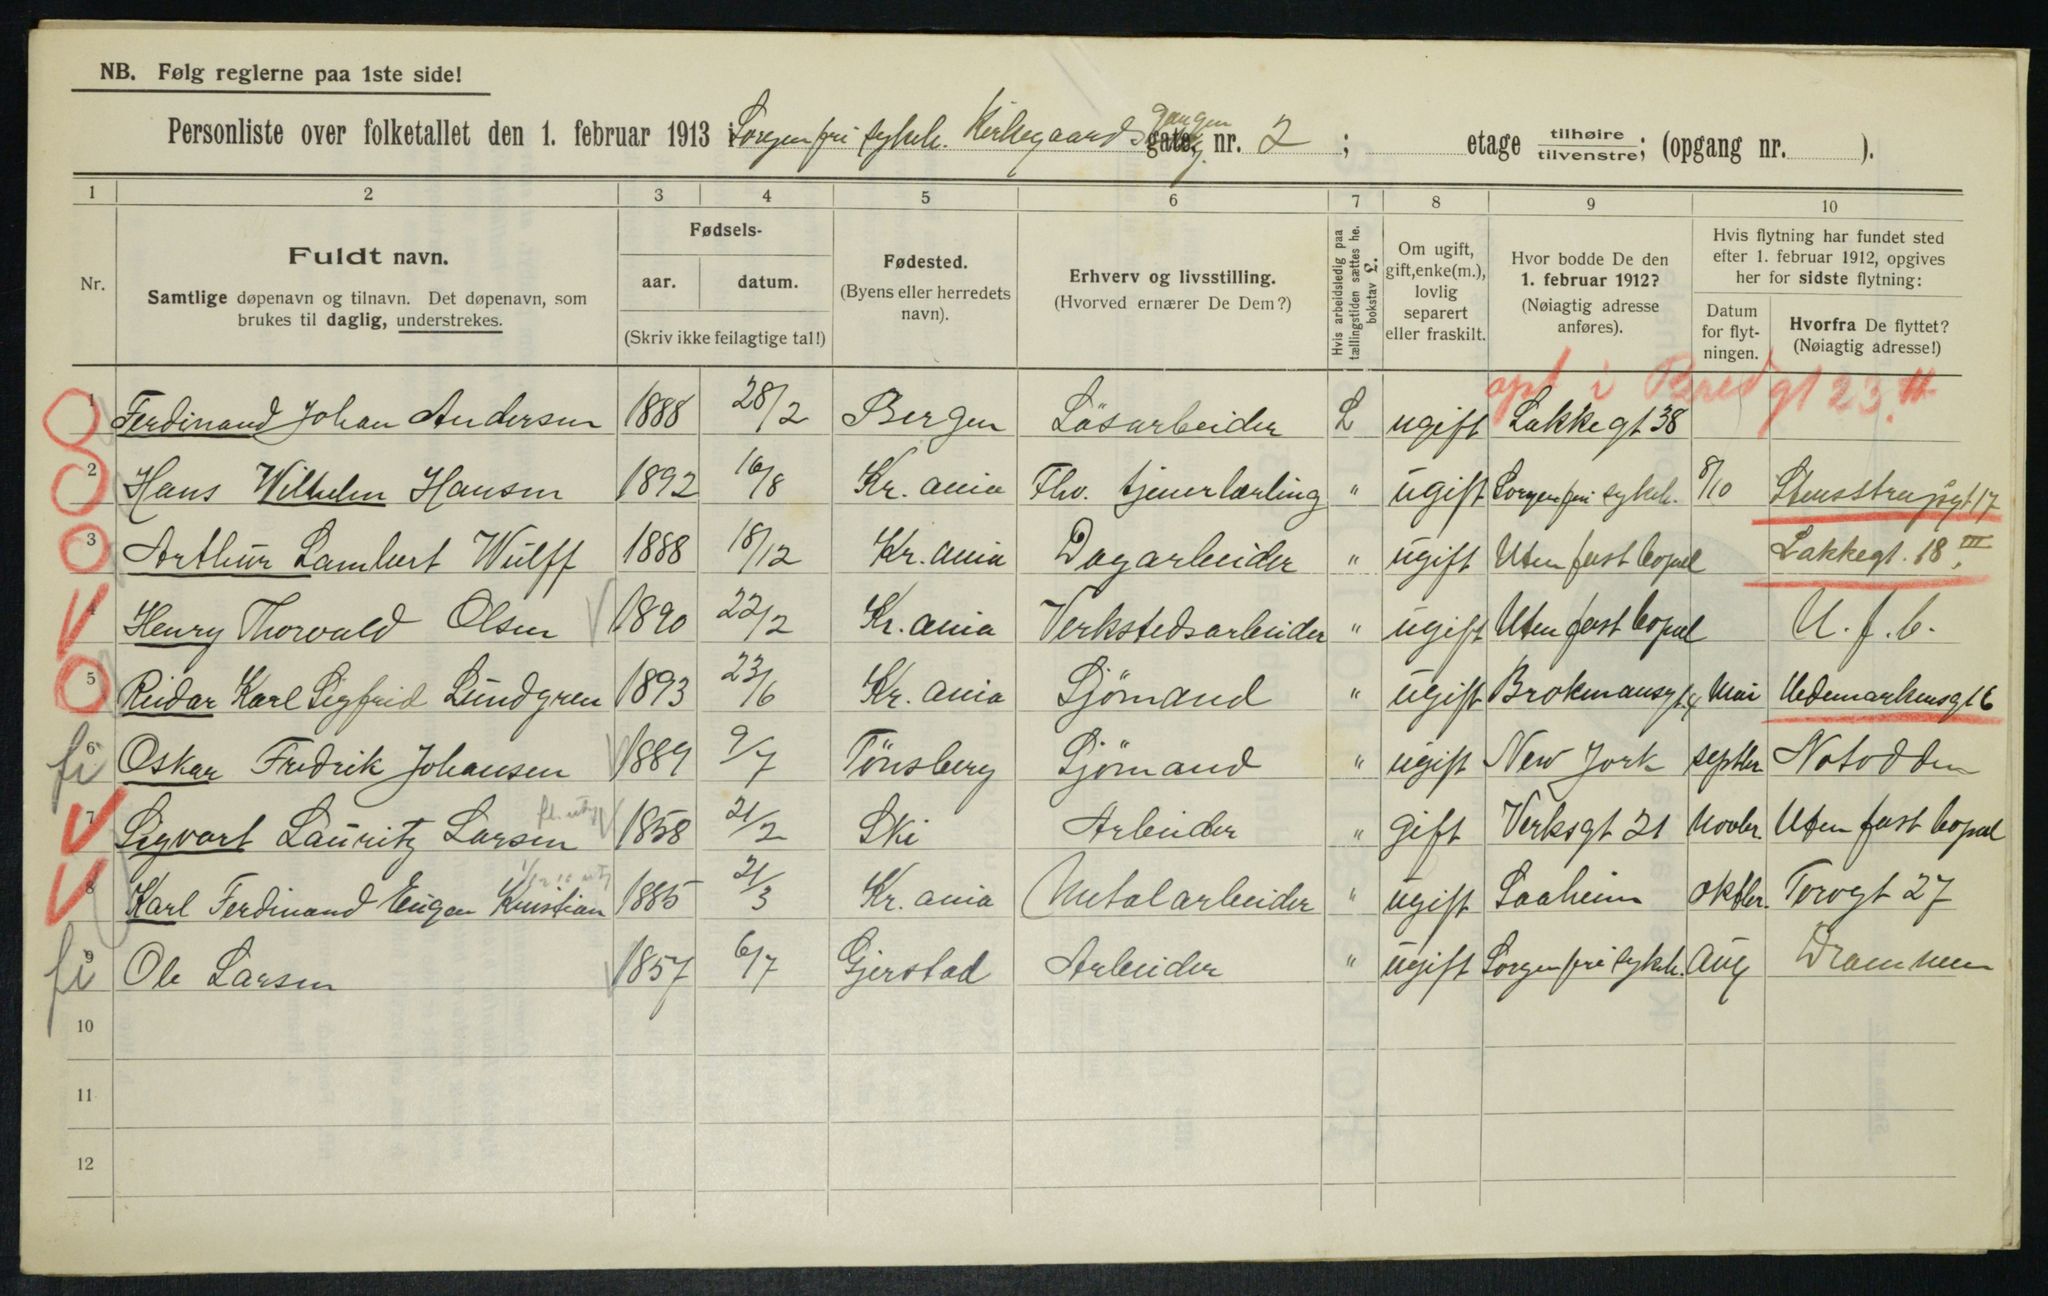 NB. Følg reglerne paa 1ste side!
Personliste over folketallet den 1. februar 1913 i Sorgenfri sykeh. Kirkegaardsgangen gate nr. 2 ; etage tilhøire/tilvenstre; (opgang nr. ).
1 2 3 4 5 6 7 8 9 10
Nr.
Fuldt navn.
Samtlige døpenavn og tilnavn. Det døpenavn, som brukes til daglig, understrekes.
Fødsels-
aar. datum.
(Skriv ikke feilagtige tal!)
Fødested.
(Byens eller herredets navn).
Erhverv og livsstilling.
(Hvorved ernærer De Dem?)
Hvis arbeidsledig paa tællingstiden sættes he. bokstav L.
Om ugift, gift, enke(m.), lovlig separert eller fraskilt.
Hvor bodde De den 1. februar 1912?
(Nøiagtig adresse anføres).
Hvis flytning har fundet sted efter 1. februar 1912, opgives her for sidste flytning:
Datum for flyt-ningen.
Hvorfra De flyttet?
(Nøiagtig adresse!)
opt i Bredgt 23 II
1 Ferdinand Johan Andersen 1888 28/2 Bergen Løsarbeider L ugift Lakkegt 38
2 Hans Wilhelm Hansen 1892 16/8 Kr.ania Fhv. tjenerlærling " ugift Sorgenfri sykeh. 8/10 Stensstrupsgt 17
3 Arthur Lambert Wulff 1888 18/12 Kr.ania Dagarbeider " ugift Uten fast bopæl Lakkegt. 18 III
4 Henry Thorvald Olsen 1890 22/2 Kr.ania Verkstedsarbeider " ugift Uten fast bopæl U. f. b.
5 Reidar Karl Sigfrid Lundgren 1893 23/6 Kr.ania Sjømand " ugift Brokmansgt 4 Mai Hedemarkensgt 6
fi 6 Oskar Fredrik Johansen 1889 9/7 Tønsberg Sjømand " ugift New York septbr Notodden
7 Sigvart Lauritz Larsen 1858 21/2 Ski Arbeider " gift Verksgt 21 Novbr. Uten fast bopæl
8 Karl Ferdinand Eugen Kristian 1885 21/3 Kr.ania Metalarbeider " ugift Saaheim oktbr. Torvgt 27
fi 9 Ole Larsen 1857 6/7 Gjerstad Arbeider " ugift Sorgenfri sykeh. Aug Drammen
10
11
12